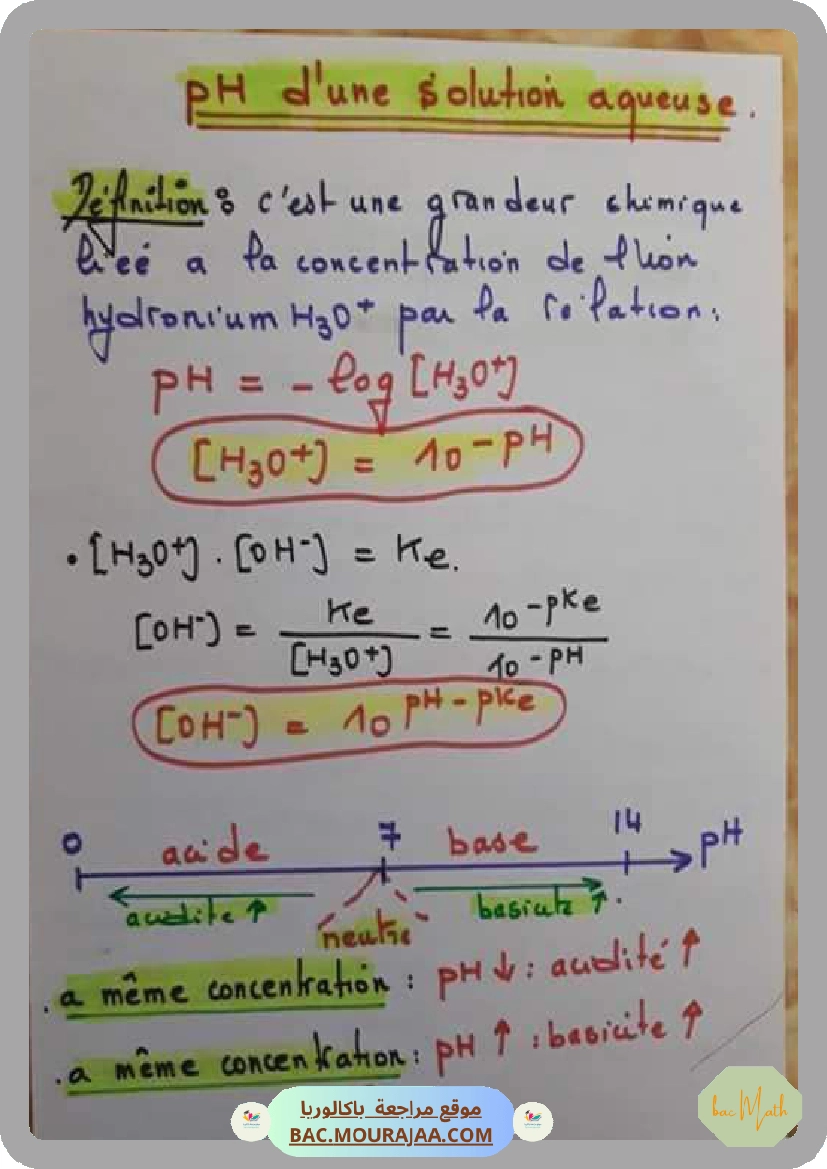 pH d'une solution aqueuse.
Définition : c'est une grandeur chimique
lieé a la concentration de l'ion
hydronium H3O+ par la relation:
pH = - log [H3O+]
[H3O+] = 10^-pH
• [H3O+] . [OH-] = Ke.
[OH-] = Ke / [H3O+] = 10^-pKe / 10^-pH
[OH-] = 10^pH - pKe
0 acide 7 base 14 pH
acidité ↑ neutre basicité ↑.
. a même concentration : pH ↓ : acidité ↑
. a même concentration : pH ↑ : basicité ↑
موقع مراجعة باكالوريا
BAC.MOURAJAA.COM
bac Math